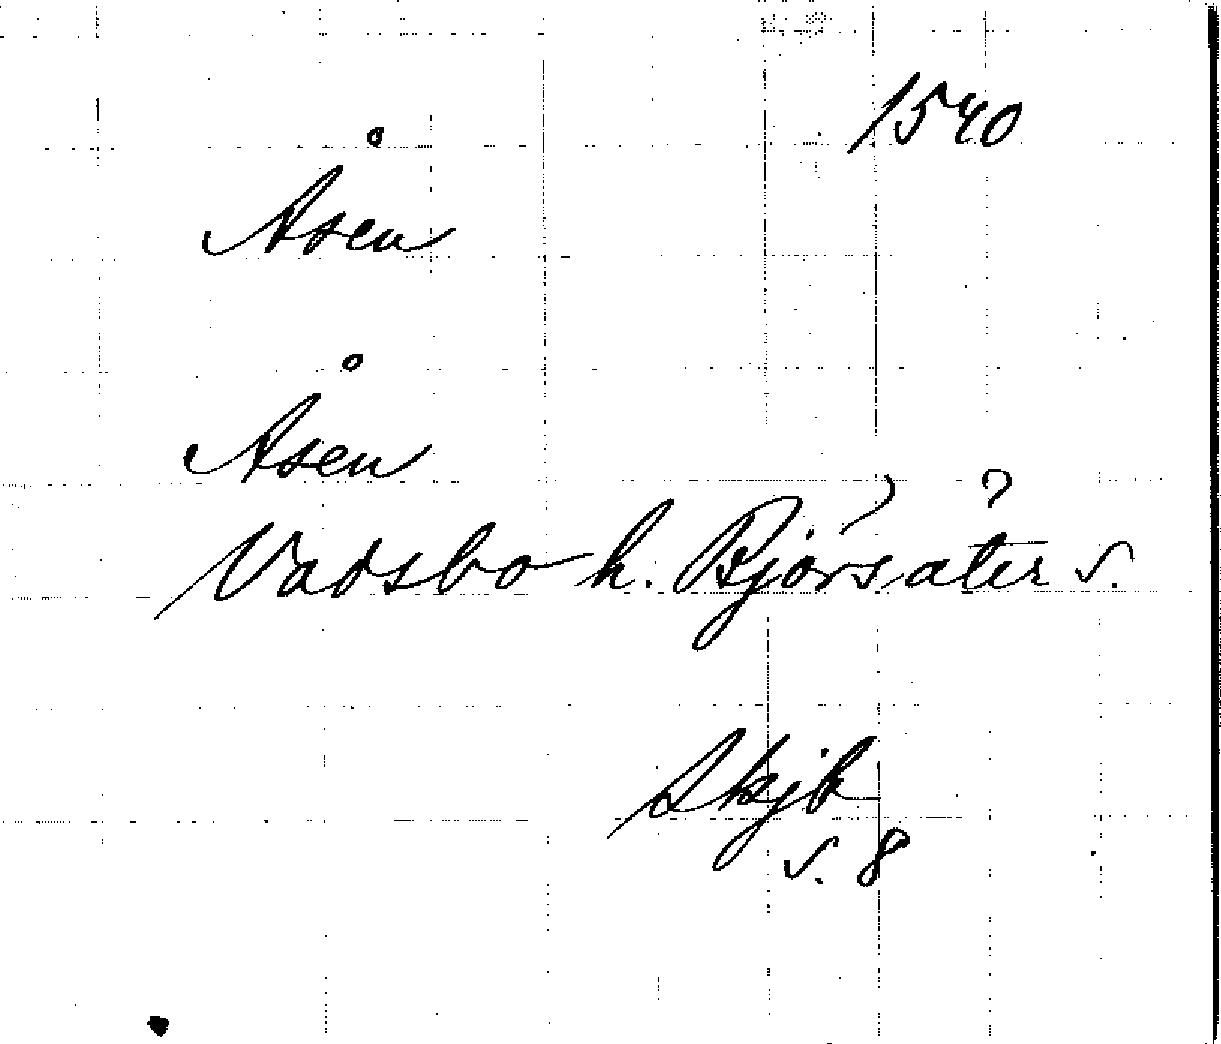 1540
Åsen
Åsen
Vadsbo h. Bjorsäter s.
Skjb
s. 8